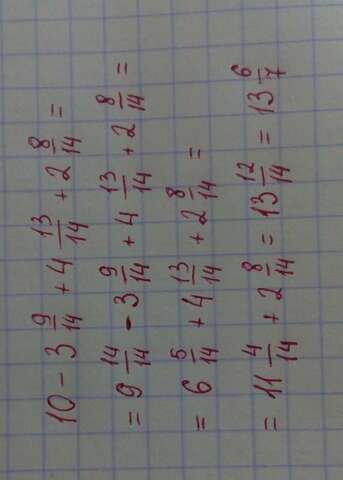 10 - 3 9/14 + 4 13/14 + 2 8/14 =
= 9 14/14 - 3 9/14 + 4 13/14 + 2 8/14 =
= 6 5/14 + 4 13/14 + 2 8/14 =
= 11 4/14 + 2 8/14 = 13 12/14 = 13 6/7